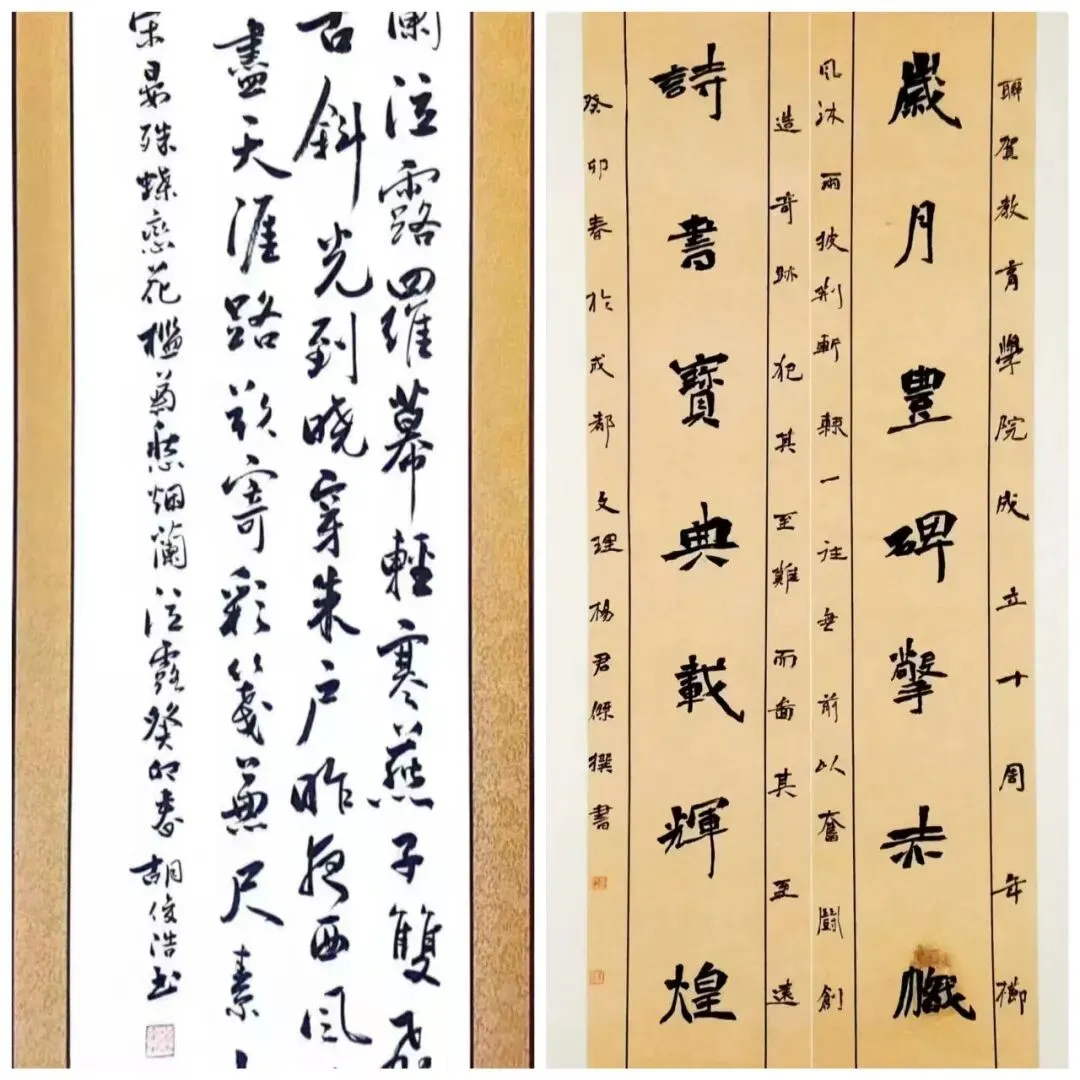 蘭泣露羅幕輕寒燕子雙飛
苦斜光到曉穿朱户昨夜西风
盡天涯路欲寄彩箋兼尺素
宋晏殊蝶恋花檻菊愁烟蘭泣露癸卯春胡俊浩书
聯賀教育學院成立十周年櫛
歲月豐碑擎赤幟
风沐雨披荆斬棘一往無前以奮鬪創
造奇跡犯其至難而圖其至遠
詩書寶典載輝煌
癸卯春於成都文理楊君傑撰書